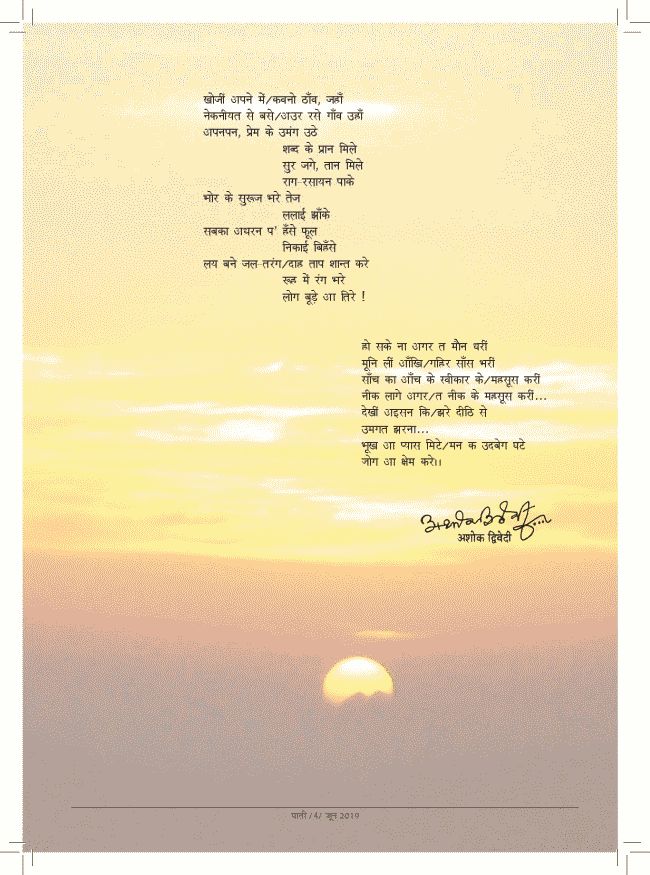 खोजीं अपने में/कवनो ठाँव, जहाँ
नेकनीयत से बसे/अउर रसे गाँव उहाँ
अपनपन, प्रेम के उमंग उठे
शब्द के प्रान मिले
सुर जगे, तान मिले
राग-रसायन पाके
भोर के सुरुज भरे तेज
ललाई झाँके
सबका अधरन प' हँसे फूल
निकाई बिहँसे
लय बने जल-तरंग/दाह ताप शान्त करे
रूह में रंग भरे
लोग बूड़े आ तिरे !
हो सके ना अगर त मौन धरीं
मूनि लीं आँखि/गहिर साँस भरीं
साँच का आँच के स्वीकार के/महसूस करीं
नीक लागे अगर/त नीक के महसूस करीं...
देखीं अइसन कि/झरे दीठि से
उमगत झरना...
भूख आ प्यास मिटे/मन क उदबेग घटे
जोग आ क्षेम करे।।
अशोक द्विवेदी....
अशोक द्विवेदी
पाती /4/ जून 2019